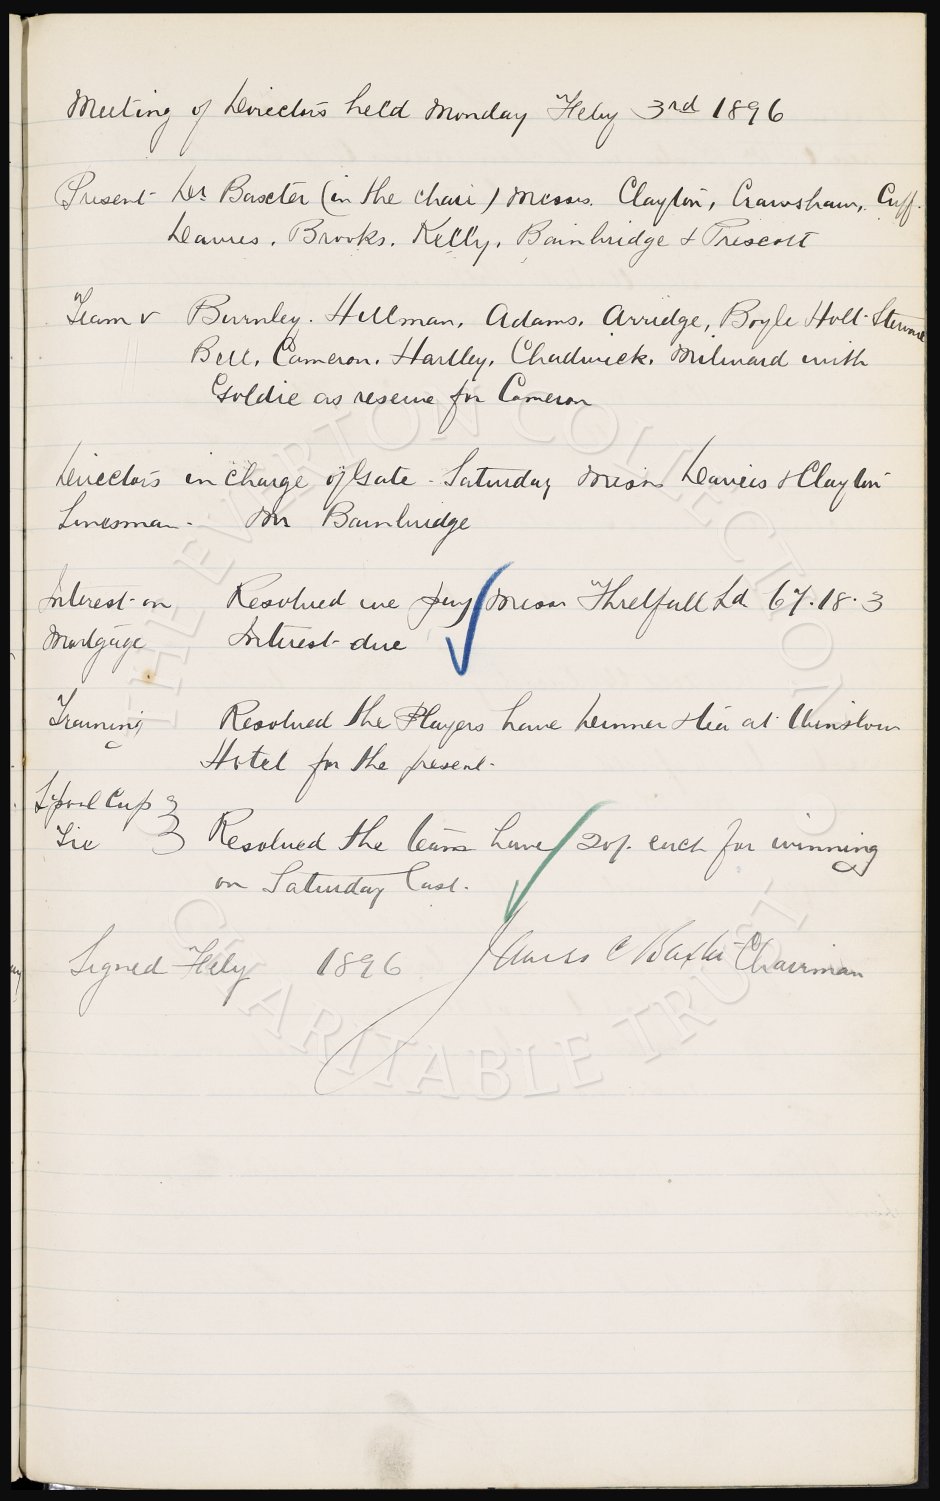 Meeting of Directors held Monday Feby 3rd 1896
Present Dr Baxter (in the chair) Messrs. Clayton, Crawshaw, Cuff.
Davies, Brooks, Kelly, Bainbridge & Prescott
Team v Burnley. Hillman, Adams, Arridge, Boyle Holt Stewart
Bell, Cameron, Hartley, Chadwick, Milward with
Goldie as reserve for Cameron
Directors in charge of Gate - Saturday Messrs Davies & Clayton
Linesman - Mr Bainbridge
Interest on Resolved we pay Messrs Threlfall Ld 67.18.3
Mortgage Interest due
Training Resolved the Players have dinner & tea at Winslow
Hotel for the present.
L'pool Cup
Tie Resolved the team have 20/. each for winning
on Saturday last.
Signed Feby 1896 James C Baxter Chairman
THE EVERTON COLLECTION
CHARITABLE TRUST